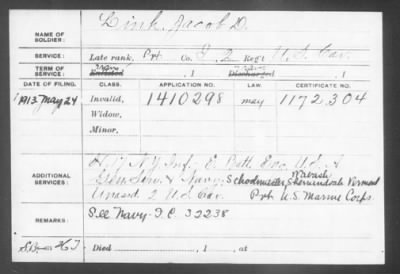 Link, Jacob D.
NAME OF SOLDIER:
SERVICE: Late rank, Pvt Co. I, 2 Reg't U.S. Cav.
TERM OF SERVICE: Enlisted , 1 Discharged , 1
DATE OF FILING. CLASS. APPLICATION NO. LAW. CERTIFICATE NO.
1913 May 24 Invalid, 1410298 may 1172304
Widow,
Minor,
N.Y. Inf. E Batt. U.S.A
ADDITIONAL SERVICES: Gen Serv. & Navy. Schoolmaster, Wabash, Shenandoah Vermont
2 U.S. Cav. Pvt. U.S. Marine Corps.
REMARKS: See Navy I.C. 32238
Died , 1 , at